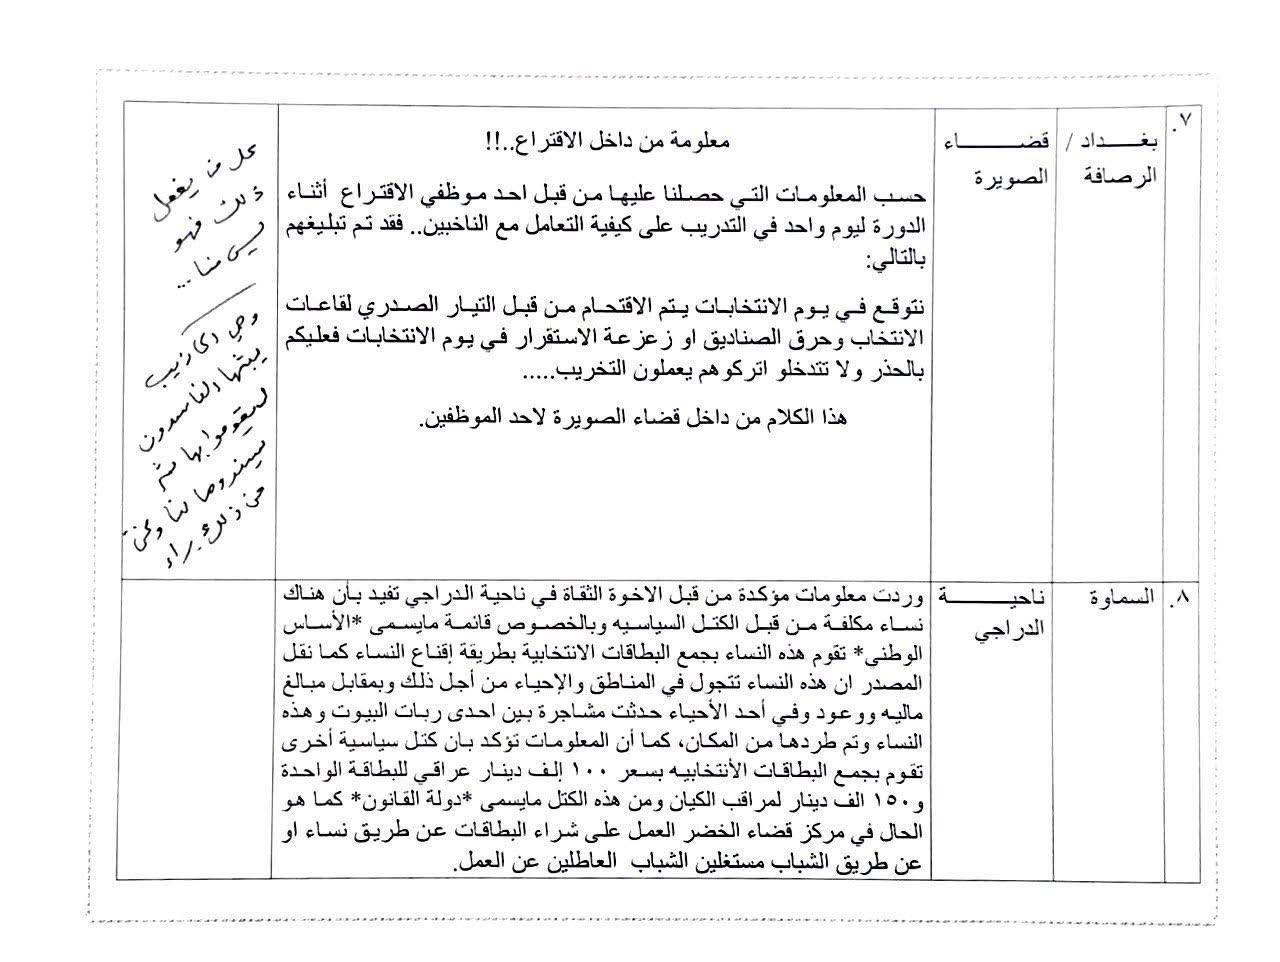 ٧.
بغداد /
الرصافة
قضاء
الصويرة
معلومة من داخل الاقتراع..!!
حسب المعلومات التي حصلنا عليها من قبل احد موظفي الاقتراع أثناء
الدورة ليوم واحد في التدريب على كيفية التعامل مع الناخبين.. فقد تم تبليغهم
بالتالي:
نتوقع في يوم الانتخابات يتم الاقتحام من قبل التيار الصدري لقاعات
الانتخاب وحرق الصناديق او زعزعة الاستقرار في يوم الانتخابات فعليكم
بالحذر ولا تتدخلو اتركوهم يعملون التخريب.....
هذا الكلام من داخل قضاء الصويرة لاحد الموظفين.
كل من يفعل
ذلك فهو
ليس منا ...
وهي اكاذيب
يبثها الفاسدون
ليقوموا بها ثم
سيسندوها لنا ونحن
من ذلك براء
٨.
السماوة
ناحية
الدراجي
وردت معلومات مؤكدة من قبل الاخوة الثقاة في ناحية الدراجي تفيد بأن هناك
نساء مكلفة من قبل الكتل السياسيه وبالخصوص قائمة مايسمى *الأساس
الوطني* تقوم هذه النساء بجمع البطاقات الانتخابية بطريقة إقناع النساء كما نقل
المصدر ان هذه النساء تتجول في المناطق والإحياء من أجل ذلك وبمقابل مبالغ
ماليه ووعود وفي أحد الأحياء حدثت مشاجرة بين احدى ربات البيوت وهذه
النساء وتم طردها من المكان، كما أن المعلومات تؤكد بان كتل سياسية أخرى
تقوم بجمع البطاقات الأنتخابيه بسعر ١٠٠ إلف دينار عراقي للبطاقة الواحدة
و١٥٠ الف دينار لمراقب الكيان ومن هذه الكتل مايسمى *دولة القانون* كما هو
الحال في مركز قضاء الخضر العمل على شراء البطاقات عن طريق نساء او
عن طريق الشباب مستغلين الشباب العاطلين عن العمل.